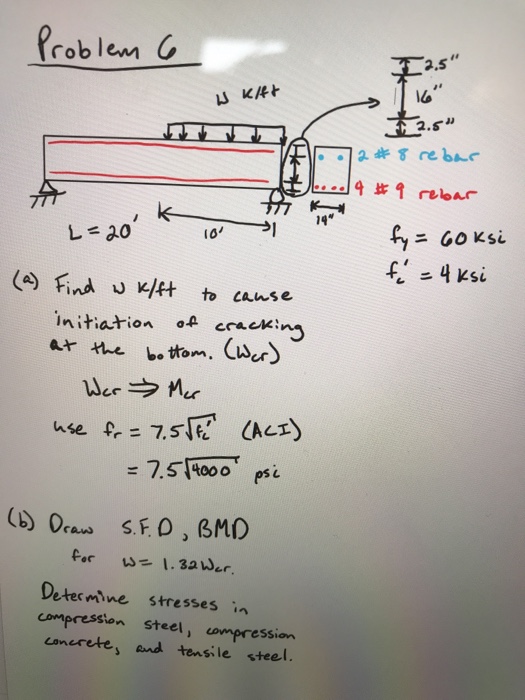 Problem 6
2.5"
w k/ft
16"
2.5"
2 # 8 rebar
4 # 9 rebar
14"
L = 20'
10'
fy = 60 ksi
fc' = 4 ksi
(a) Find w k/ft to cause
initiation of cracking
at the bottom. (Wcr)
Wcr ⇒ Mcr
use fr = 7.5√fc' (ACI)
= 7.5√4000 psi
(b) Draw S.F.D, BMD
for w = 1.32 Wcr.
Determine stresses in
compression steel, compression
concrete, and tensile steel.